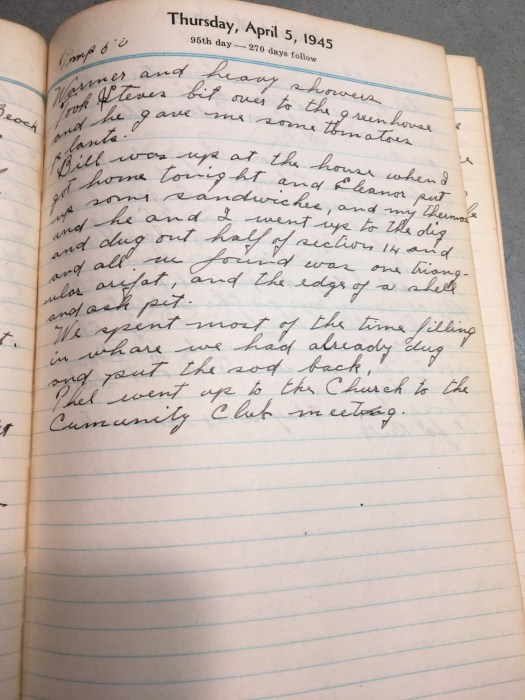 Thursday, April 5, 1945
95th day — 270 days follow
Temp
Warmer and heavy showers
Took Steves bit over to the greenhouse
and he gave me some tomatoes
plants.
Bill was up at the house when I
got home tonight and Eleanor put
up some sandwiches, and my thermos
and he and I went up to the dig
and dug out half of section 14 and
and all we found was one triang-
ular arifat, and the edge of a shell
and ash pit.
We spent most of the time filling
in whare we had already dug
and put the sod back.
Phel went up to the Church to the
Cumunity Club meeting.
Beach